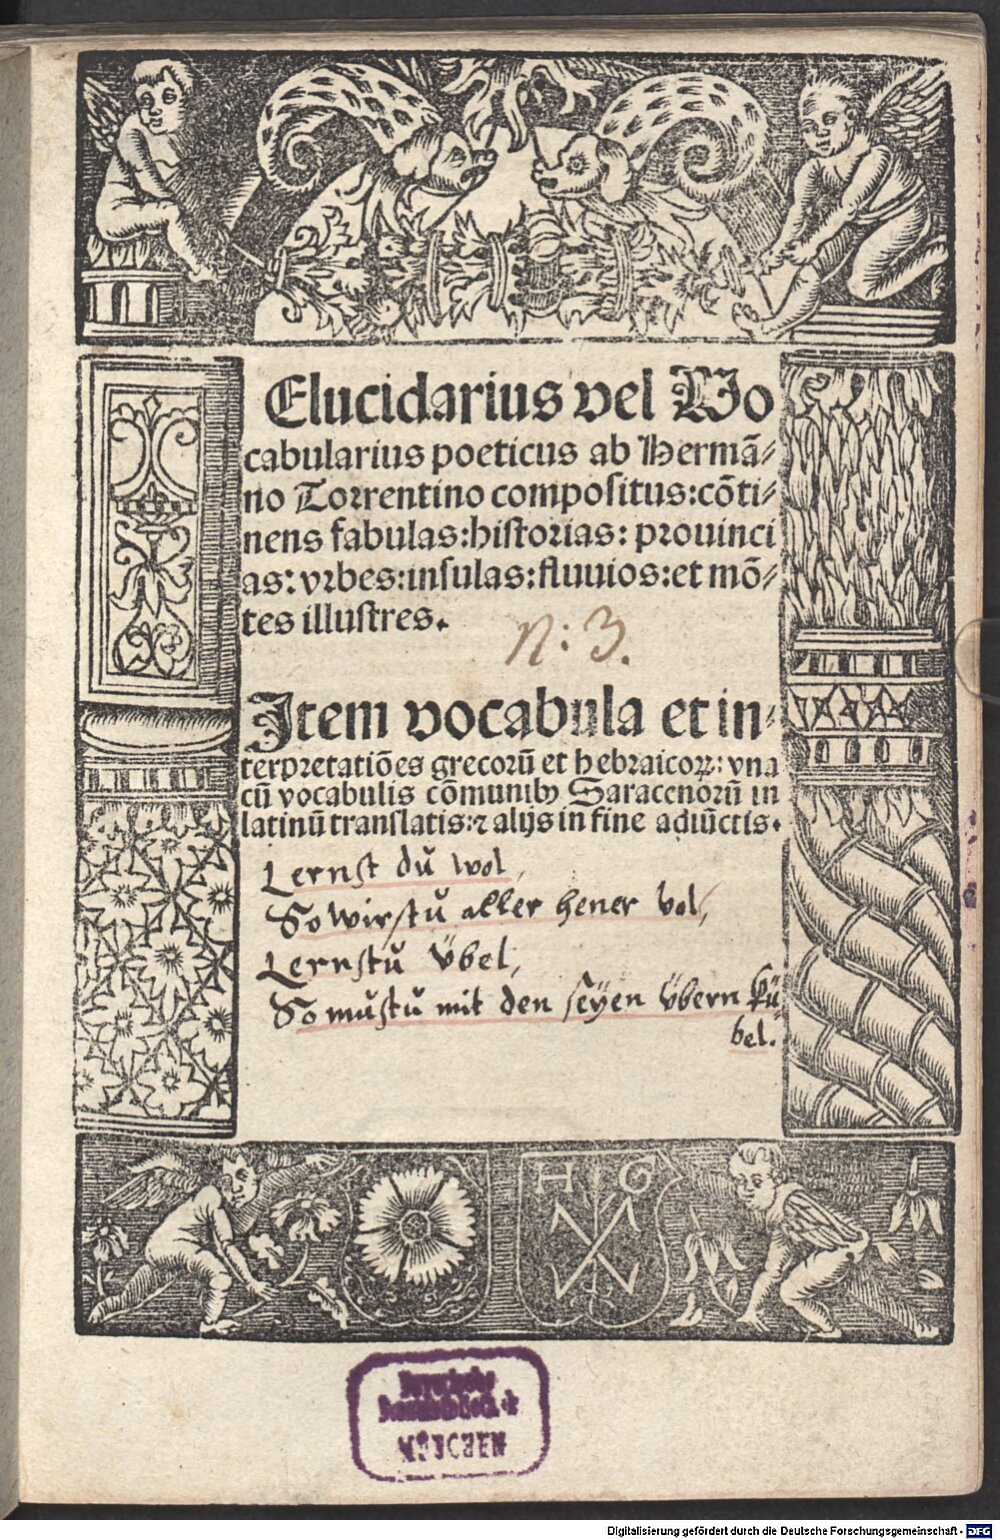 Elucidarius vel Vo
cabularius poeticus ab Hermā-
no Torrentino compositus: cōti-
nens fabulas: historias: prouinci
as: vrbes: insulas: fluuios: et mō-
tes illustres.
N: 3.
Item vocabula et in-
terpretatiōes grecorū et hebraicoꝝ: vna
cū vocabulis cōmunibꝰ Saracenorū in
latinū translatis: ⁊ alijs in fine adiūctis.
Lernst dŭ wol,
So wirstŭ aller hener vol,
Lernstŭ Übel,
So mŭstŭ mit den seÿen Übern kü-
bel.
H G
Bayerische
Staatsbibliothek
MÜNCHEN
Digitalisierung gefördert durch die Deutsche Forschungsgemeinschaft - DFG